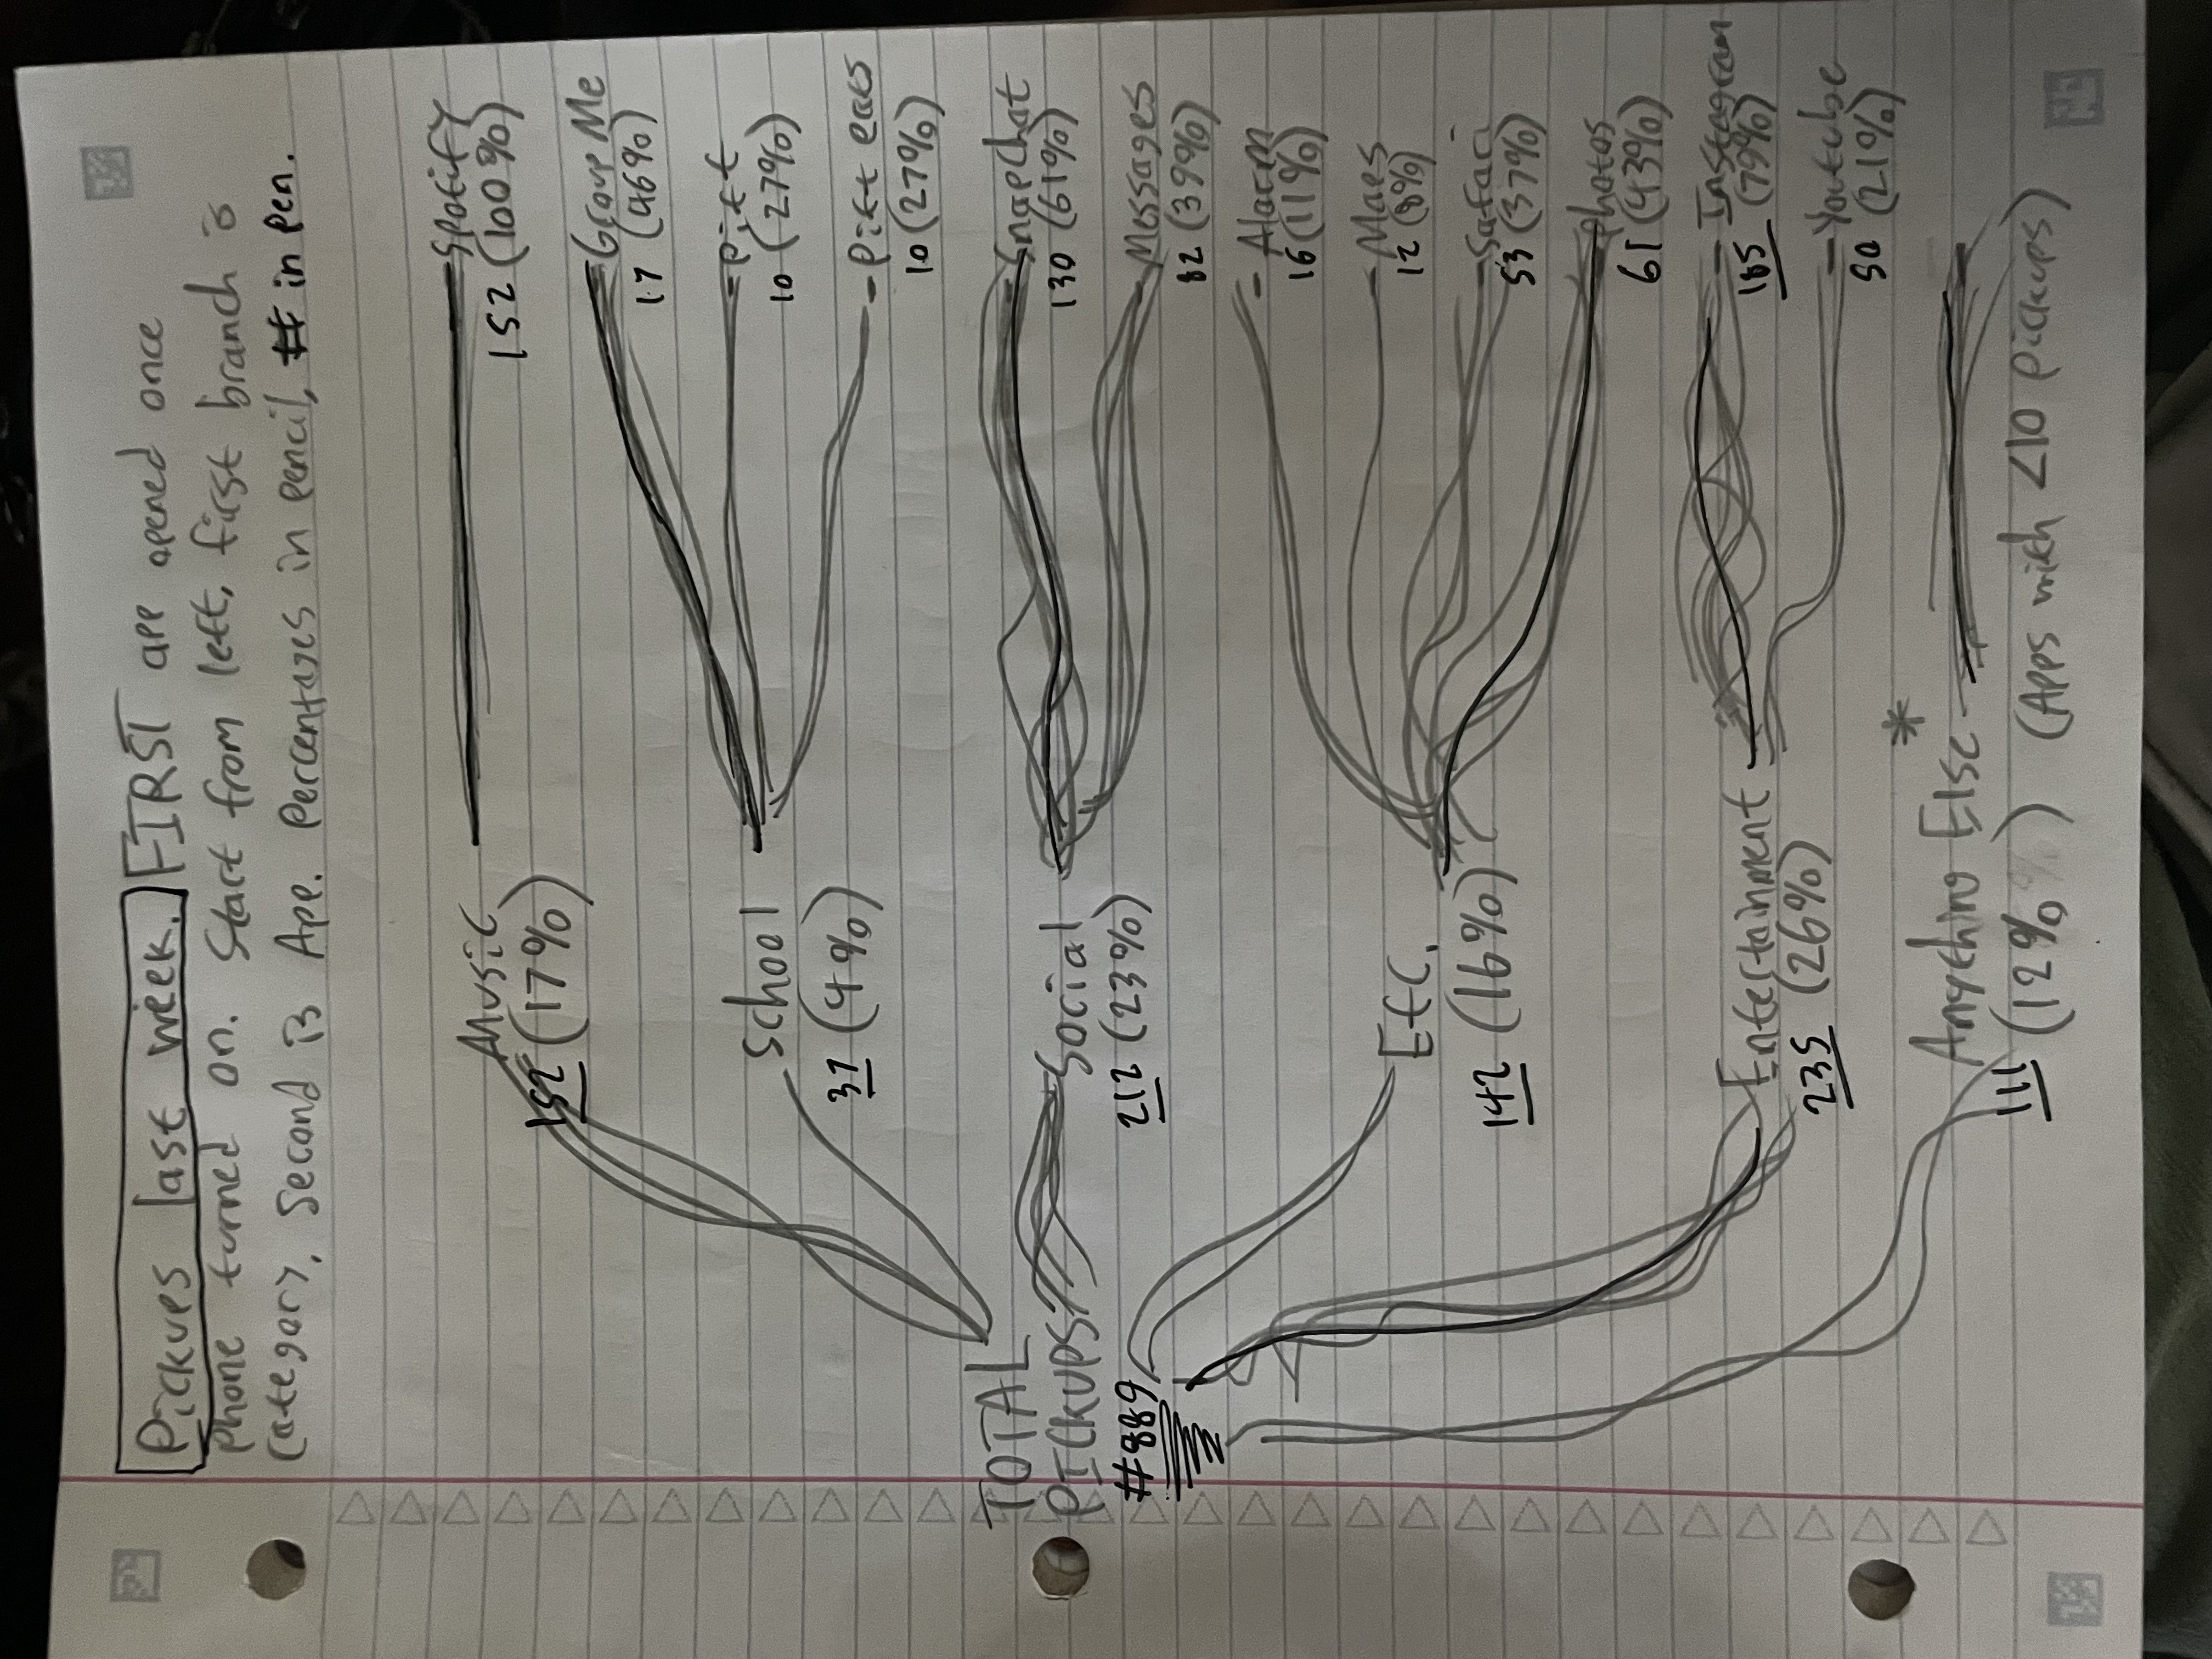 Pickups last week. FIRST app opened once
phone turned on. Start from left, first branch is
category, second is App. Percentages in pencil, # in pen.
Music
152 (17%)
Spotify
152 (100%)
School
37 (4%)
Group Me
17 (46%)
- Pitt
10 (27%)
- Pitt eats
10 (27%)
TOTAL
PICKUPS
#889
Social
212 (23%)
Snapchat
130 (61%)
Messages
82 (39%)
Etc.
142 (16%)
- Alarm
16 (11%)
- Maps
12 (8%)
- Safari
53 (37%)
Photos
61 (43%)
Entertainment
235 (26%)
- Instagram
185 (79%)
- Youtube
50 (21%)
Anything Else *
111 (12%) (Apps with <10 pickups)